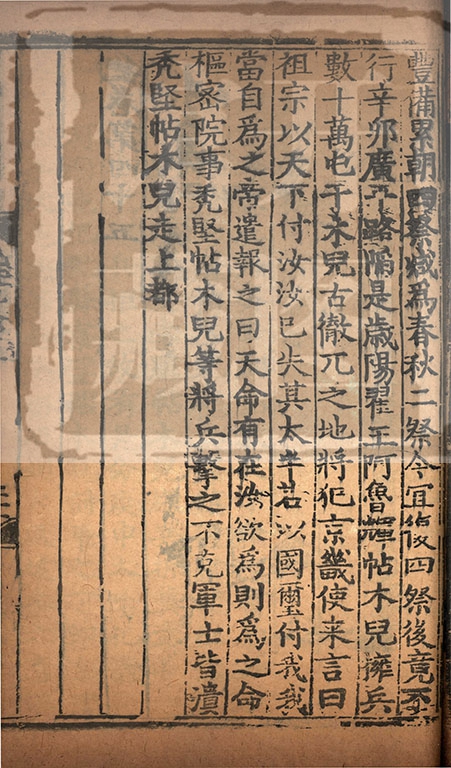 豐備累朝四祭減為春秋二祭今宜復四祭後竟不
行辛卯廣平路陷是歳陽翟王阿魯輝帖木兒擁兵
數十萬屯于木兒古徹兀之地將犯京畿使来言曰
祖宗以天下付汝汝已失其太半若以國璽付我我
當自爲之帝遣報之曰天命有在汝欲爲則爲之命
樞密院事禿堅帖木兒等將兵擊之不克軍士皆潰
禿堅帖木兒走上都